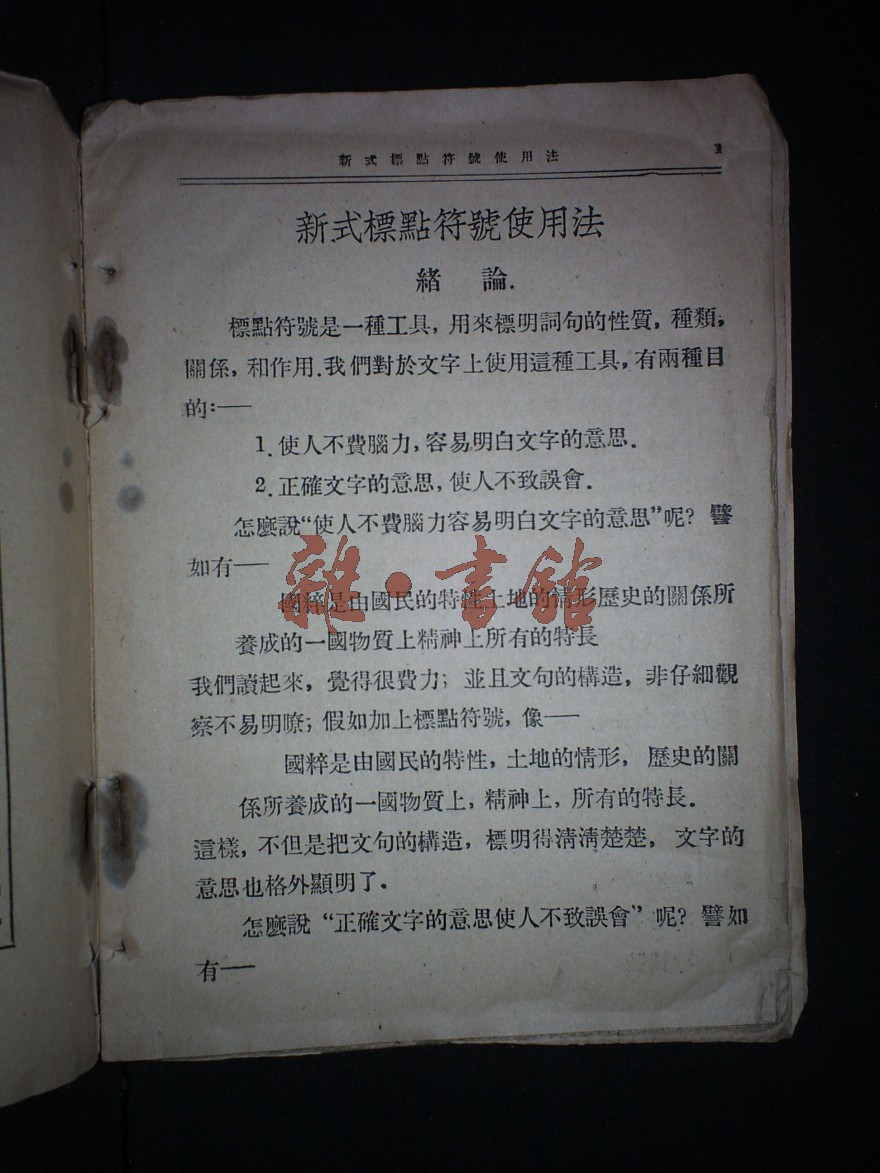 新式標點符號使用法 1
新式標點符號使用法
緒 論.
標點符號是一種工具，用來標明詞句的性質，種類，
關係，和作用.我們對於文字上使用這種工具，有兩種目
的:——
1.使人不費腦力，容易明白文字的意思.
2.正確文字的意思，使人不致誤會.
怎麼說“使人不費腦力容易明白文字的意思”呢? 譬
如有——
雜·書館
國粹是由國民的特性土地的情形歷史的關係所
養成的一國物質上精神上所有的特長
我們讀起來，覺得很費力; 並且文句的構造，非仔細觀
察不易明瞭; 假如加上標點符號，像——
國粹是由國民的特性，土地的情形，歷史的關
係所養成的一國物質上，精神上，所有的特長.
這樣，不但是把文句的構造，標明得清清楚楚，文字的
意思也格外顯明了.
怎麼說“正確文字的意思使人不致誤會”呢? 譬如
有——